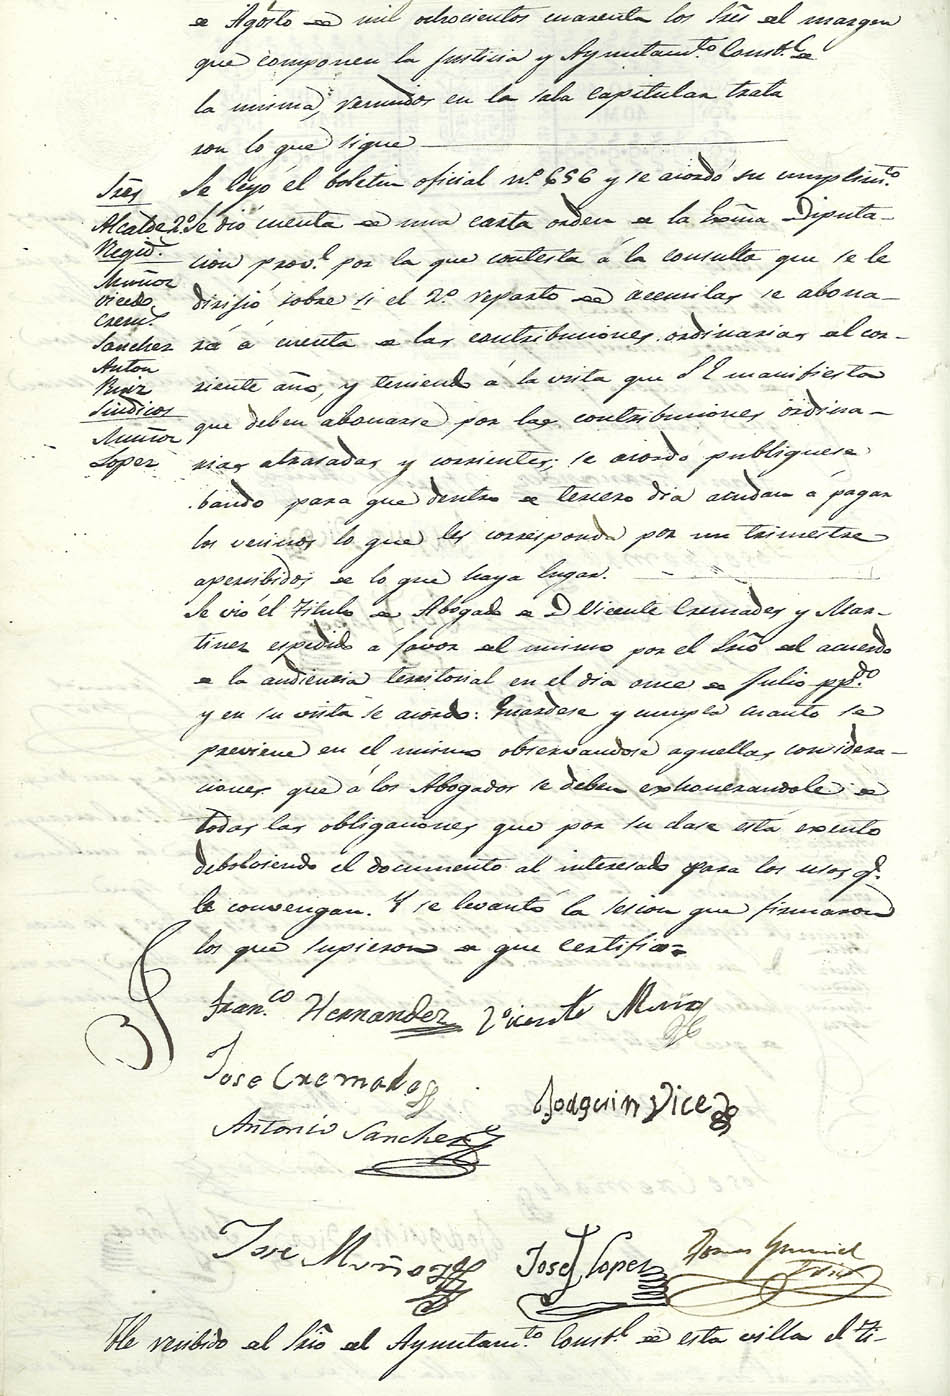 de Agosto de mil ochocientos cuarenta los Sres del margen
que componen la Justicia y Ayuntamto Constl de
la misma, reunidos en la sala capitular trata
ron lo que sigue
Sres
Alcalde 2º
Regid.s
Muñoz
Vicedo
Crem.s
Sanchez
Anton
Ruiz
Sindicos
Muñoz
Lopez
Se leyó el boletin oficial nº 656 y se acordó su cumplimto
Se dió cuenta de una carta orden de la Exma Diputa-
cion provl por la que contesta á la consulta que se le
dirijió sobre si el 2º reparto de acemilas se abona-
rá á cuenta de las contribuciones ordinarias del cor-
riente año, y teniendo á la vista que S E manifiesta
que deben abonarse por las contribuciones ordina-
rias atrasadas y corrientes; se acordó publiquese
bando para que dentro de tercero dia acudan á pagar
los vecinos lo que les corresponda por un trimestre
apercibidos de lo que haya lugar.
Se vió el Titulo de Abogado de D Vicente Cremades y Mar-
tinez espedido á favor del mismo por el Srio del acuerdo
de la audiencia territorial en el dia once de Julio ppdo
y en su vista se acordó: Guardese y cumpla cuanto se
previene en el mismo observandose aquellas considera-
ciones que á los Abogados se deben exhonerandole de
todas las obligaciones que por su clase está exento
debolviendo el documento al interesado para los usos q.
le convengan. Y se levantó la sesion que firmaron
los que supieron de que certifico=
Franco Hernandez Vicente Muñoz
Jose Cremades
Joaquin Vicedo
Antonio Sanchez
Jose Muñoz
Jose Lopez
He recibido del Srio del Ayuntamto Constl de esta villa el ti-